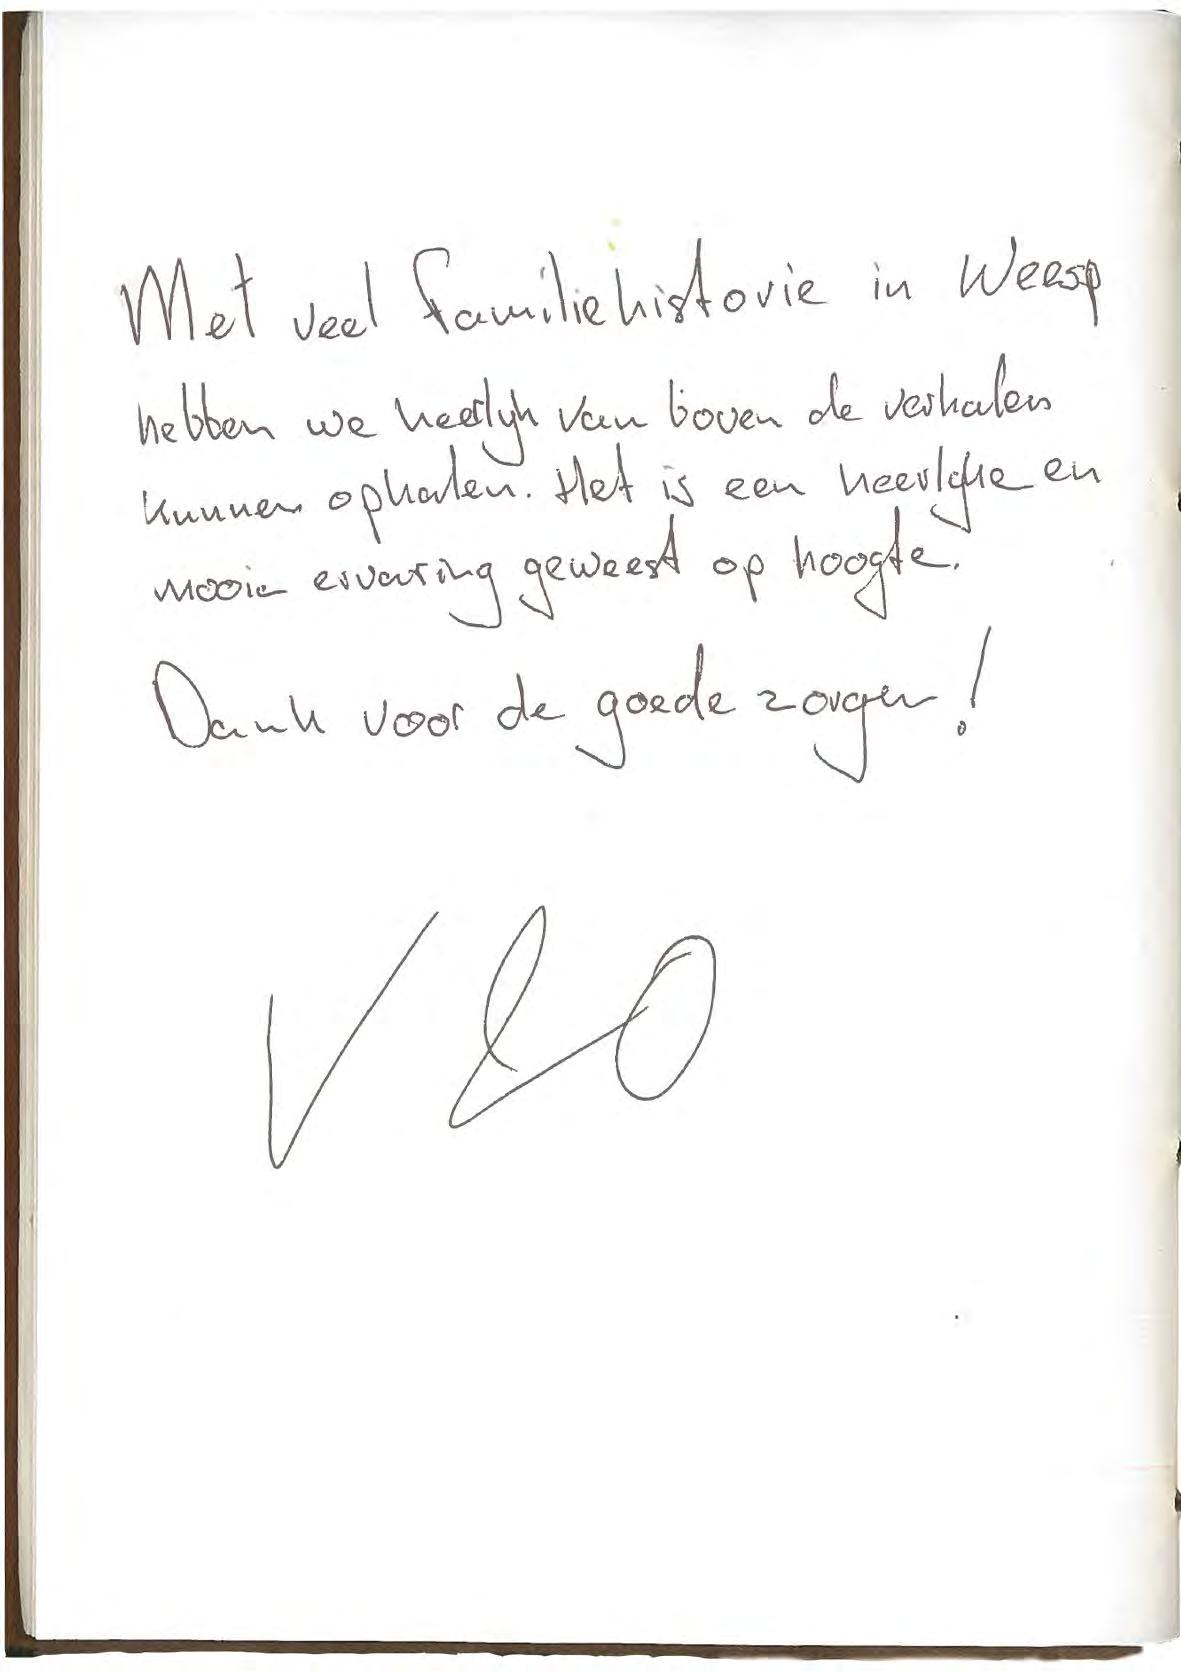 Met veel familiehistorie in Weesp
hebben we heerlijk van boven de verhalen
kunnen ophalen. Het is een heerlijke en
mooie ervaring geweest op hoogte.
Dank voor de goede zorgen!